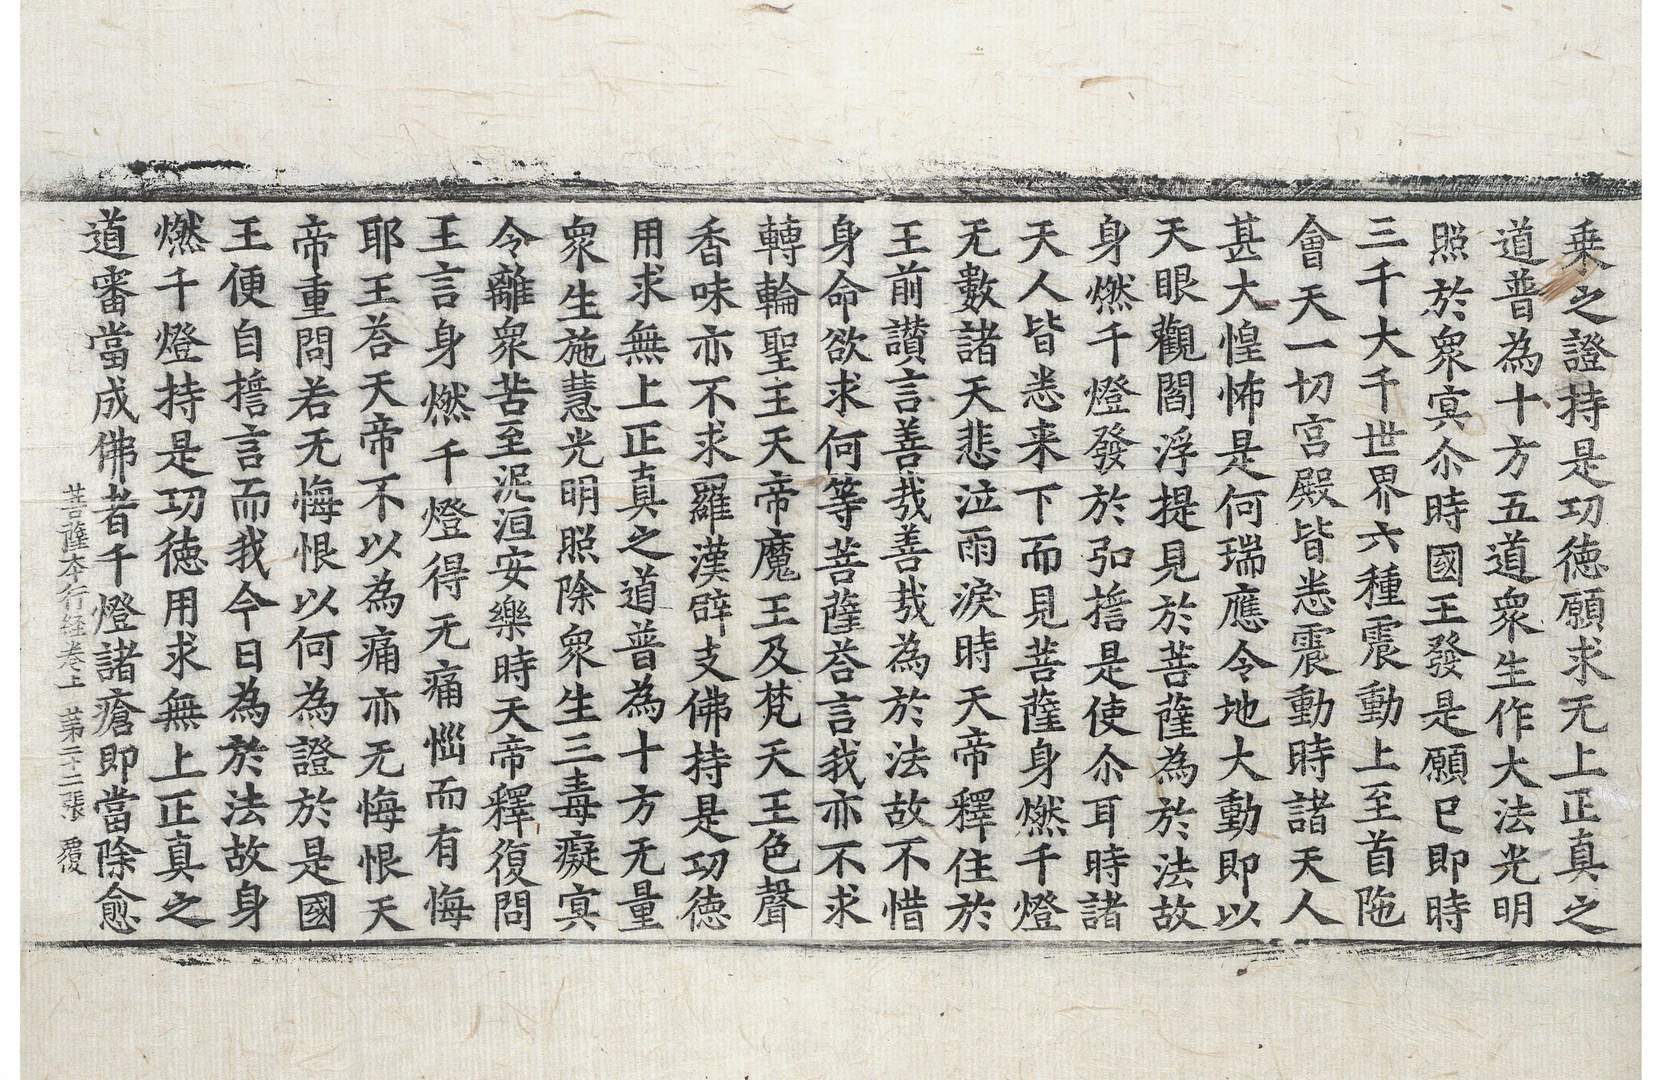 乗之證持是功徳願求无上正真之
道普為十方五道衆生作大法光明
照於衆㝠尒時國王發是願已即時
三千大千世界六種震動上至首陁
會天一切宫殿皆悉震動時諸天人
甚大惶怖是何瑞應令地大動即以
天眼觀閻浮提見於菩薩為於法故
身燃千燈發於弘擔是使尒耳時諸
天人皆悉来下而見菩薩身燃千燈
无數諸天悲泣雨淚時天帝釋住於
王前讃言善㦲善㦲為於法故不惜
身命欲求何等菩薩荅言我亦不求
轉輪聖王天帝魔王及梵天王色聲
香味亦不求羅漢辟支佛持是功徳
用求無上正真之道普為十方无量
衆生施慧光明照除衆生三毒癡㝠
令離衆苦至泥洹安樂時天帝釋復問
王言身燃千燈得无痛惱而有悔
耶王荅天帝不以為痛亦无悔恨天
帝重問若无悔恨以何為證於是國
王便自擔言而我今日為於法故身
燃千燈持是功徳用求無上正真之
道審當成佛者千燈諸瘡即當除愈
菩薩本行経卷上 苐二十二張 覆